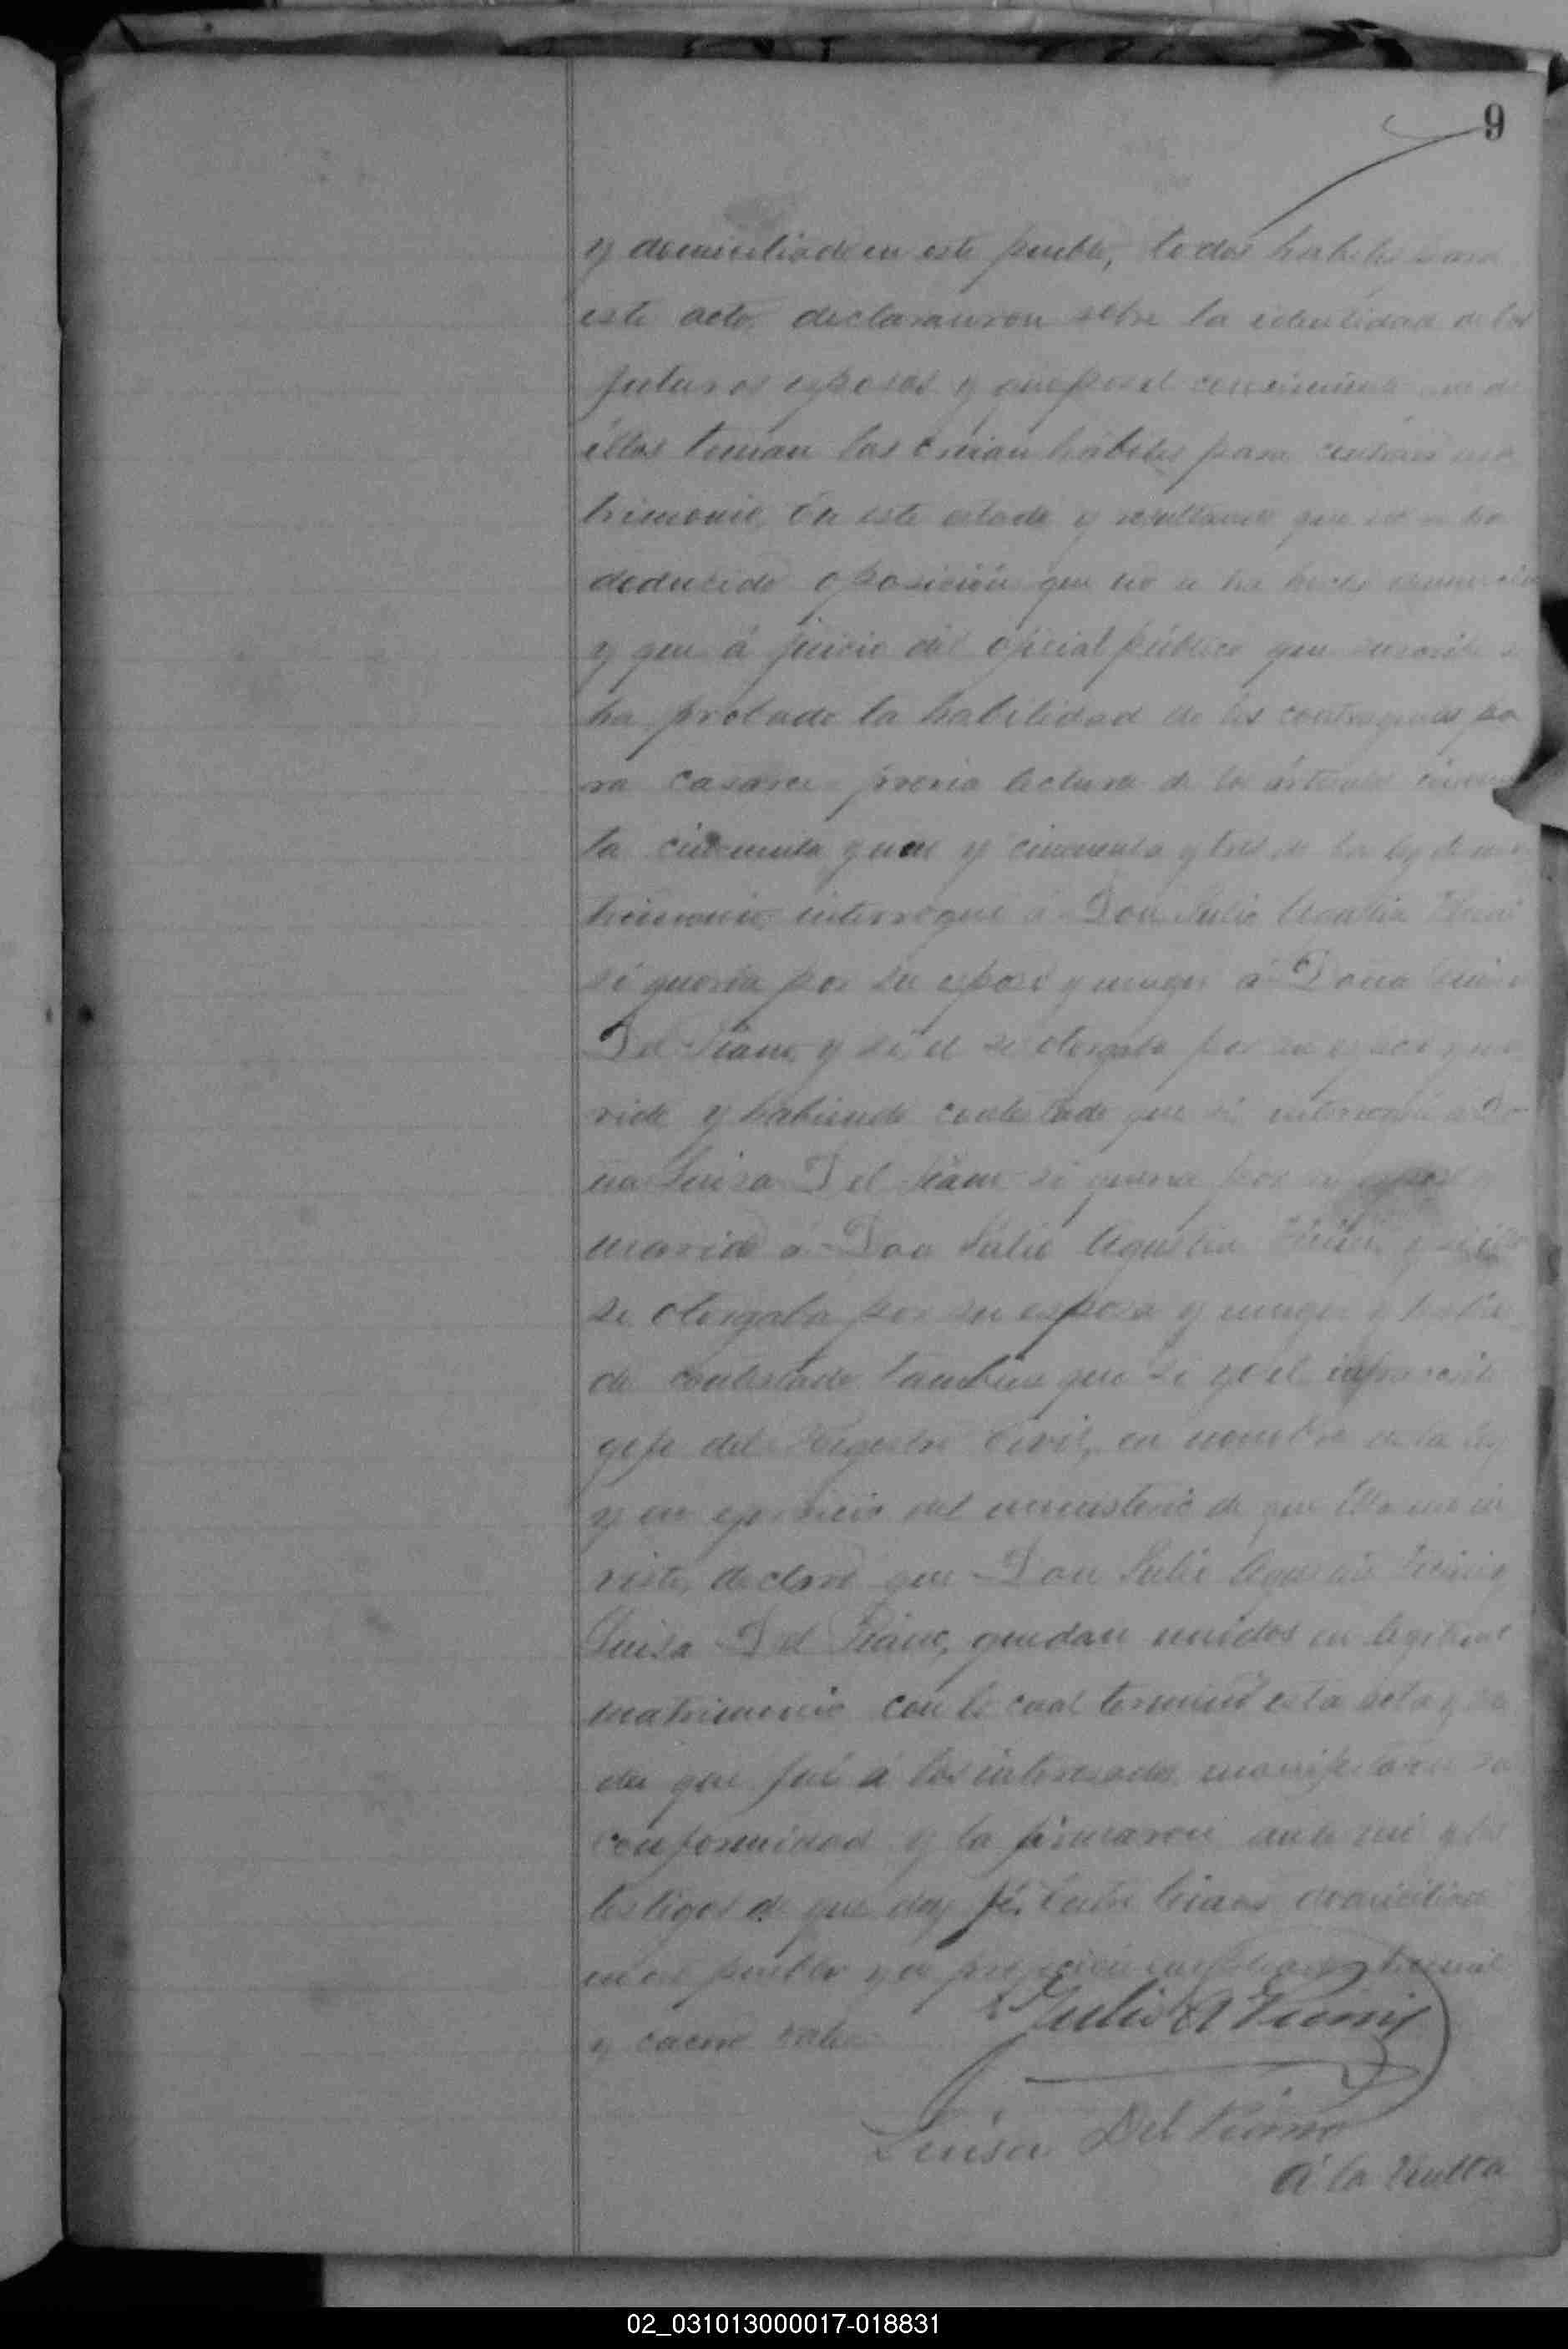 9
y domiciliado en este pueblo, todos habiles para
este acto, declararon sobre la identidad de los
futuros esposos y que por el conocimiento que de
éllos tenian los creian hábiles para contraer ma
trimonio, En este estado y resultando que no se ha
deducido oposición que no se ha hecho denuncia
y que á juicio del oficial público que suscribe se
ha probado la habilidad de los contrayentes pa
ra casarse previa lectura de los artículos cincuen
ta cincuenta y uno y cincuenta y tres de la ley de ma
trimonio, interrogué á Don Julio Agustin
si queria por su esposa y muger á Doña Luisa
Del Piano y si el se otorgaba por su esposo y ma
rido y habiendo contestado que si interrogué a Do
ña Luisa Del Piano si queria por su esposo y
marido a Don Julio Agustin y si ella
se otorgaba por su esposa y muger y habien
do contestado tambien que si yo el infrascrito
gefe del Registro Civil, en nombre de la ley
y en ejercicio del ministerio de que ella me in
viste, declaré que Don Julio Agustin y
Luisa Del Piano, quedan unidos en legitimo
matrimonio con lo cual terminó esta acta y
da que fué á los interesados manifestaron su
conformidad y la firmaron ante mi y los
testigos de que doy fé. Entre lineas domiciliado
en este pueblo y de profesión empleado
y vale
Julio A
Luisa Del Piano
á la Vuelta
02_031013000017-018831